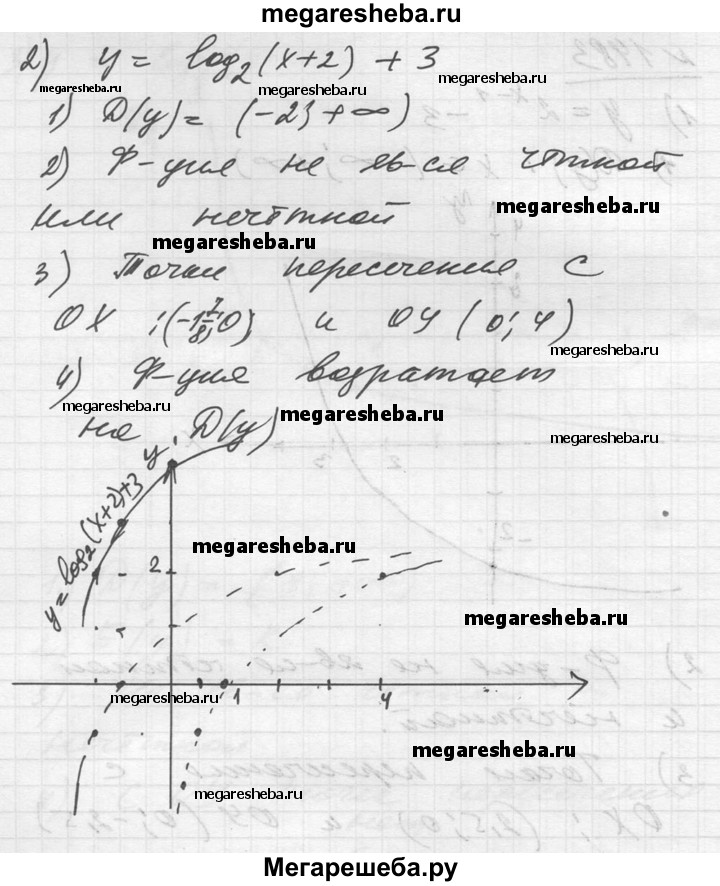 megaresheba.ru
2) y = log₂(x+2) + 3
megaresheba.ru megaresheba.ru megaresheba.ru
1) D(y) = (-2; +∞)
megaresheba.ru
2) Ф-ция не яв-ся чётной
megaresheba.ru
или нечётной
megaresheba.ru
3) Точки пересечения с
OX : (-1 7/8; 0) и OY (0; 4)
megaresheba.ru
4) Ф-ция возрастает
megaresheba.ru megaresheba.ru megaresheba.ru
на D(y)
y
y = log₂(x+2)+3
megaresheba.ru
2
megaresheba.ru
megaresheba.ru 1 4
megaresheba.ru
megaresheba.ru
Мегарешеба.ру